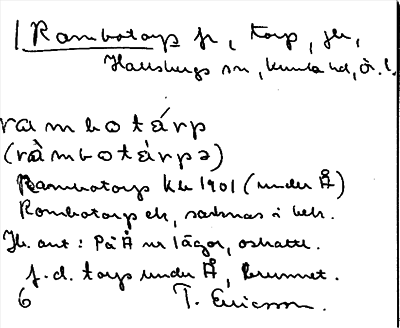 Rambotorp fr, torp, jb,
Hallsbergs sn, Kumla hd, Ör. l.
rambotárp
(ràmbotàrpə)
Rambotorp kb 1901 (under Å)
Rombotorp ek, saknas i beb.
Jb. ant: På Å nr lägor, oskatt.
f.d. torp under Å, brunnet.
6 T. Ericsson.